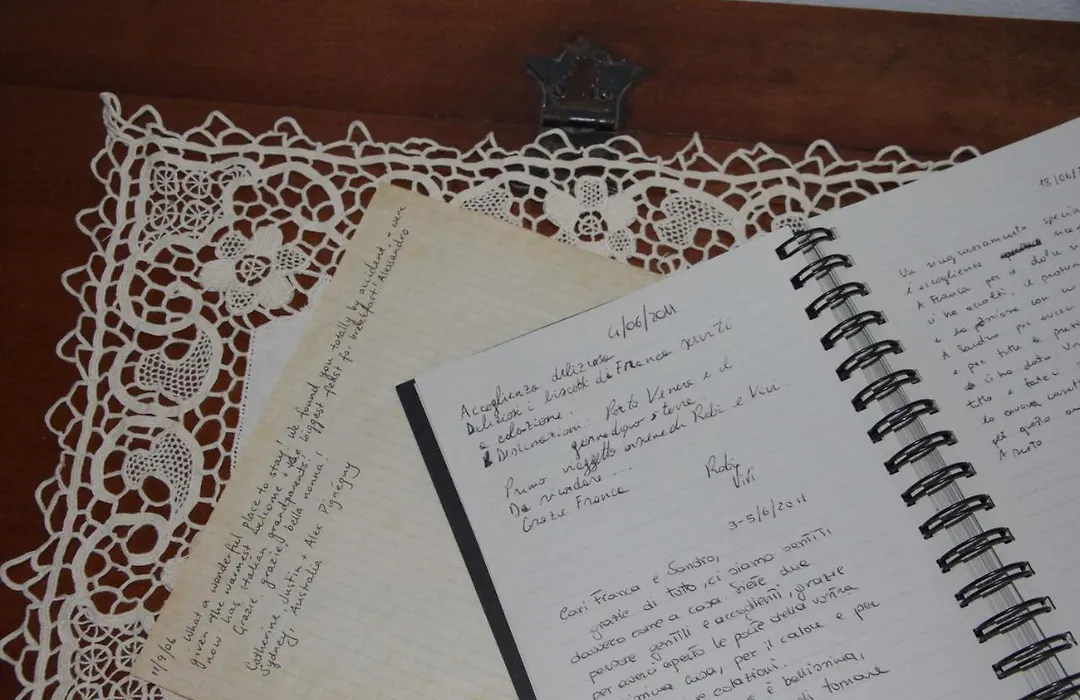 11/9/06
What a wonderful place to stay! We found you totally by accident + were
given the warmest welcome & the biggest feast for breakfast! Alessandro
now has Italian grandparents!
Grazie, grazie, bella nonna!
Catherine, Justin + Alex Pignéguy
Sydney, Australia
4/06/2011
Accoglienza deliziosa
Deliziosi i biscotti di Franca serviti
a colazione.
Destinazioni: Porto Venere e il
Primo
viaggetto insieme di Robi e Vivi.
Da ricordare...
Grazie Franca
Roby
Vivi
3-5/6/2011
Cari Franca e Sandro,
grazie di tutto, ci siamo sentiti
davvero come a casa. Siete due
persone gentili e accoglienti, grazie
per averci aperto le porte della vostra
casa, per il calore e per
colazioni.
è bellissima,
di tornare
18/06/
Un ringraziamento specia
e accogliente
A Franca per
ci ha accolti, il
e la passione con
A Sandro per averci
e per tutte le
ci ha dato. Un
tutto e
per questo
A presto